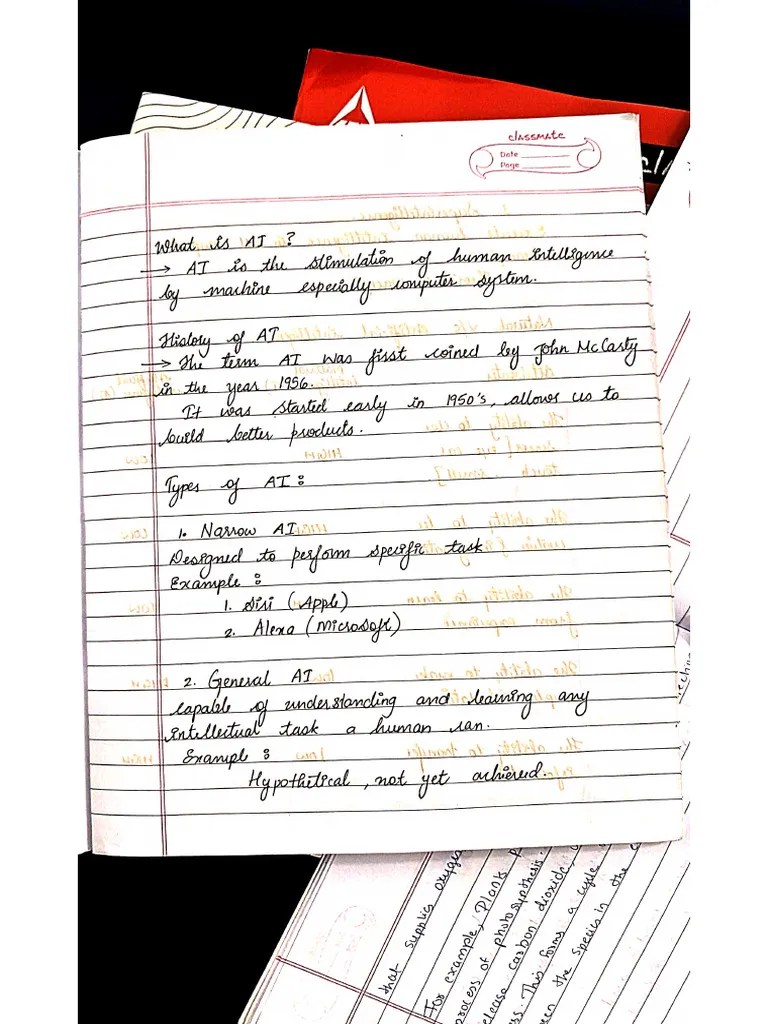 classmate
Date
Page
What is AI ?
→ AI is the stimulation of human intelligence
by machine especially computer system.
History of AI
→ The term AI was first coined by John McCasty
in the year 1956.
It was started early in 1950's, allows us to
build better products.
Types of AI :
1. Narrow AI
Designed to perform specific task
Example :
1. Sisi (Apple)
2. Alexa (Microsoft)
2. General AI
capable of understanding and learning any
intellectual task a human can.
Example :
Hypothetical, not yet achieved.
that supplies oxygen
For example, Plants
process of photosynthesis.
release carbon dioxide,
This forms a cycle
the species in the